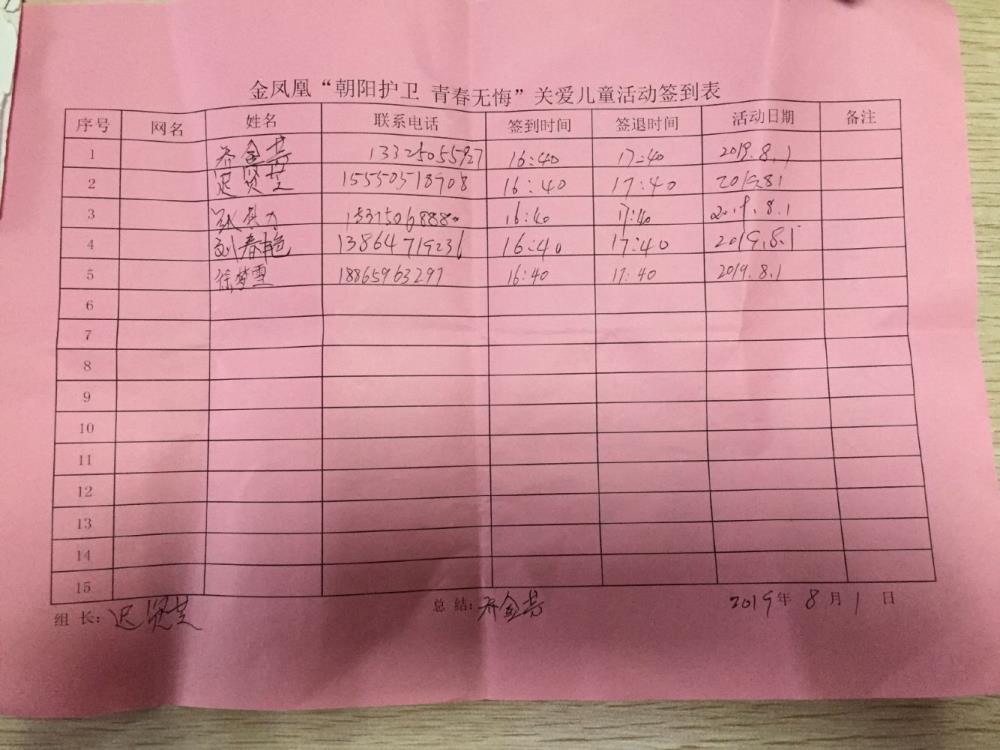 金凤凰“朝阳护卫 青春无悔”关爱儿童活动签到表
序号 网名 姓名 联系电话 签到时间 签退时间 活动日期 备注
1 乔金芸 13325055927 16:40 17:40 2019.8.1
2 迟贤芝 15550518908 16:40 17:40 2019.8.1
3 16:40 17:40 2019.8.1
4 刘春艳 13864719236 16:40 17:40 2019.8.1
5 徐梦雪 18865963297 16:40 17:40 2019.8.1
6
7
8
9
10
11
12
13
14
15
组 长：迟贤芝 总 结：乔金芸 2019年 8月 1日